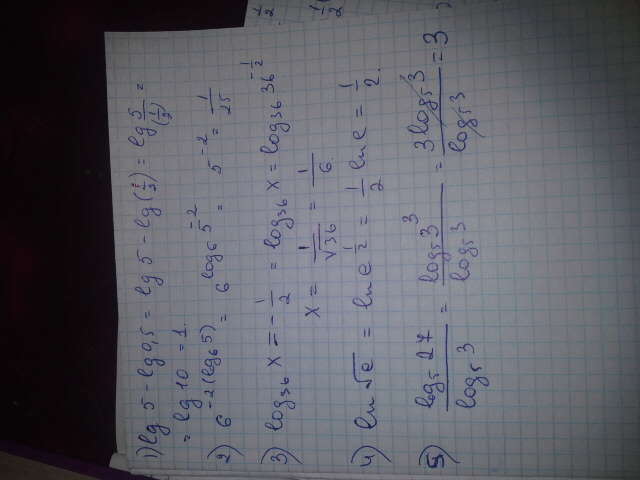 1) lg 5 - lg 0,5 = lg 5 - lg(1/2) = lg 5/(1/2) =
= lg 10 = 1.
2) 6^(-2(log₆5)) = 6^(log₆5^(-2)) = 5^(-2) = 1/25
3) log₃₆ x = -1/2 = log₃₆ x = log₃₆ 36^(-1/2)
x = 1/√36 = 1/6.
4) ln √e = ln e^(1/2) = 1/2 ln e = 1/2.
5) log₅27/log₅3 = log₅3³/log₅3 = 3log₅3/log₅3 = 3